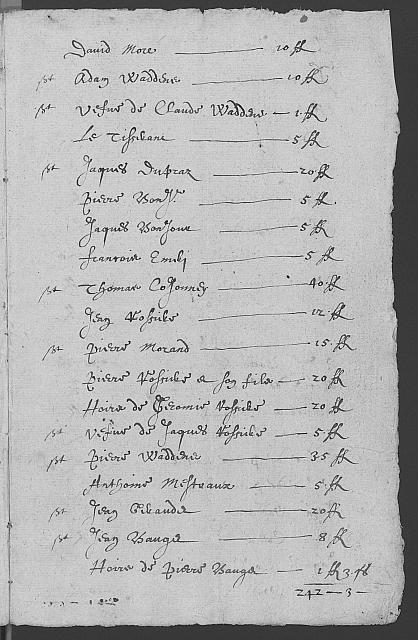 David More — 10 ff
pt Adam Waddere — 10 ff
pt vefue de Claude Waddere — 1 ff
Le Tisserant — 5 ff
pt Jaques Dupraz — 20 ff
Pierre Bonjr — 5 ff.
Jaques Bonjour — 5 ff
francoise Emili — 5 ff
pt Thomas — 40 ff
Jean Rossike — 12 ff
pt Pierre Morand — 15 ff
Pierre Rossike et son filz — 20 ff
Hoirs de Rossike — 20 ff
pt vefue de Jaques Rossike — 5 ff
pt Pierre Waddere — 35 ff
Anthoine Mestraux — 5 ff
pt Jean — 20 ff
pt Jean Bauge — 8 ff
Hoirs de Pierre Bauge — 1 ff 3
242 — 3 —